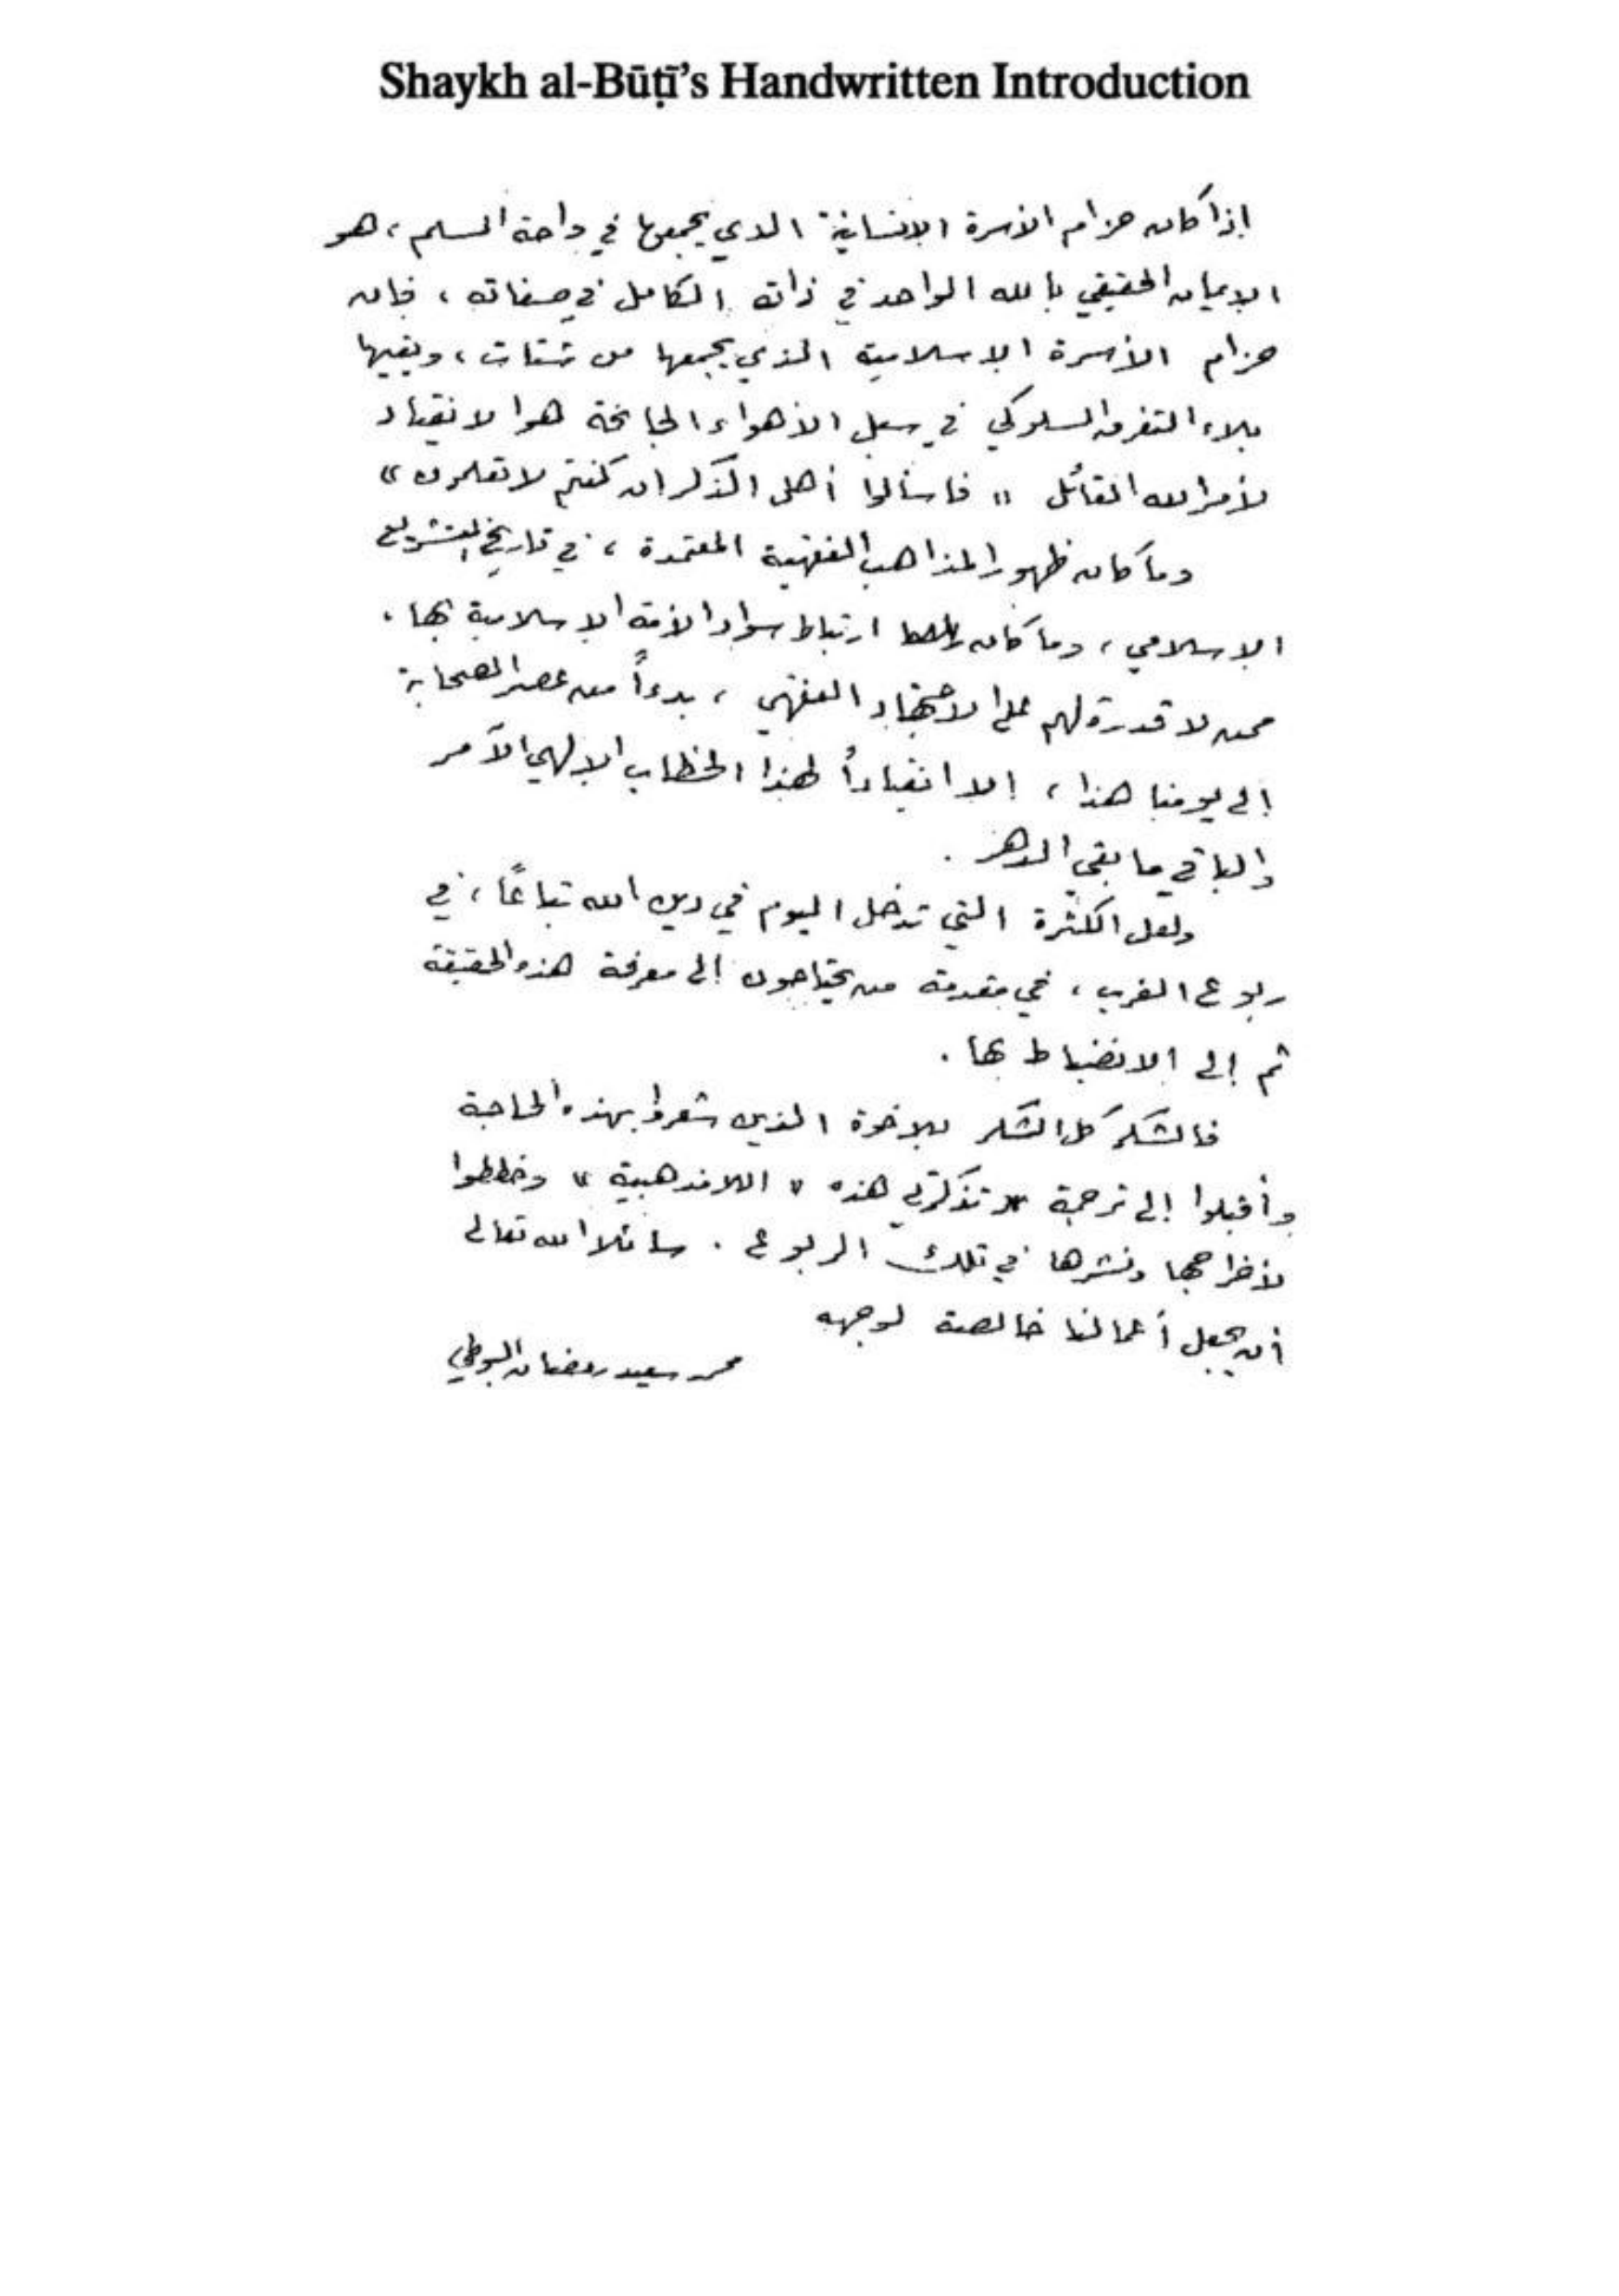 Shaykh al-Būṭī's Handwritten Introduction
إذا كان حزام الأسرة الإنسانية الذي يجمعها في واحة السلم، هو
الإيمان الحقيقي بالله الواحد في ذاته الكامل في صفاته، فإن
حزام الأسرة الإسلامية الذي يجمعها من شتات، ويقيها
بلاء التفرق السلوكي في سبل الأهواء الجانحة هو الانقياد
لأمر الله القائل « فاسألوا أهل الذكر إن كنتم لا تعلمون »
وما كان ظهور المذاهب الفقهية المعتمدة، في تاريخ التشريع
الإسلامي، وما كان ارتباط سواد الأمة الإسلامية بها،
ممن لا قدرة لهم على الاجتهاد الفقهي، بدءاً من عصر الصحابة
إلى يومنا هذا، إلا انقياداً لهذا الخطاب الإلهي الآمر
والباقي ما بقي الدهر.
ولعل الكثرة التي تدخل اليوم في دين الله تباعًا، في
ربوع الغرب، في مقدمة من يحتاجون إلى معرفة هذه الحقيقة
ثم إلى الانضباط بها.
فالشكر كل الشكر للإخوة الذين شعروا بهذه الحاجة
وأقبلوا إلى ترجمة تذكرتي هذه « اللامذهبية » وخططوا
لإخراجها ونشرها في تلك الربوع. سائلا الله تعالى
أن يجعل أعمالنا خالصة لوجهه
محمد سعيد رمضان البوطي